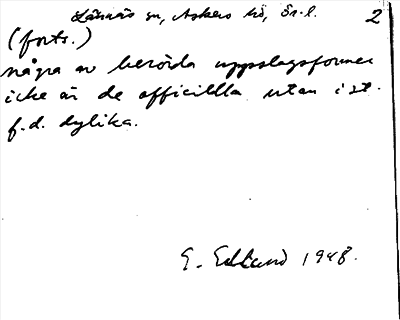 Lännäs sn, Askers hd, Ör. l. 2
(forts.)
några av berörda uppslagsformer
icke är de officiella utan i st.
f.d. dylika.
E. Edlund 1948.